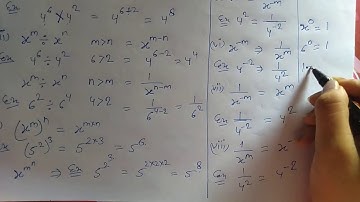 Ex 4⁶ × 4² = 4⁶⁺² = 4⁸
xᵐ ÷ xⁿ m>n = xᵐ⁻ⁿ
Ex 4⁶ ÷ 4² 6>2 = 4⁶⁻² = 4⁴
xᵐ ÷ xⁿ n>m = 1/xⁿ⁻ᵐ
Ex 6² ÷ 6⁴ 4>2 = 1/6⁴⁻² = 1/6²
(xᵐ)ⁿ = xᵐˣⁿ
(5²)³ = 5²ˣ³ = 5⁶
x^m^n ⇒ Ex 5^2^3 = 5²ˣ²ˣ² = 5⁸
Ex 4² = 1/4⁻²
(vi) x⁻ᵐ → 1/xᵐ
Ex 4⁻² → 1/4²
(vii) 1/x⁻ᵐ = xᵐ
Ex 1/4⁻² = 4²
(viii) 1/xᵐ = x⁻
Ex 1/4² = 4⁻²
x⁰ = 1
6⁰ = 1